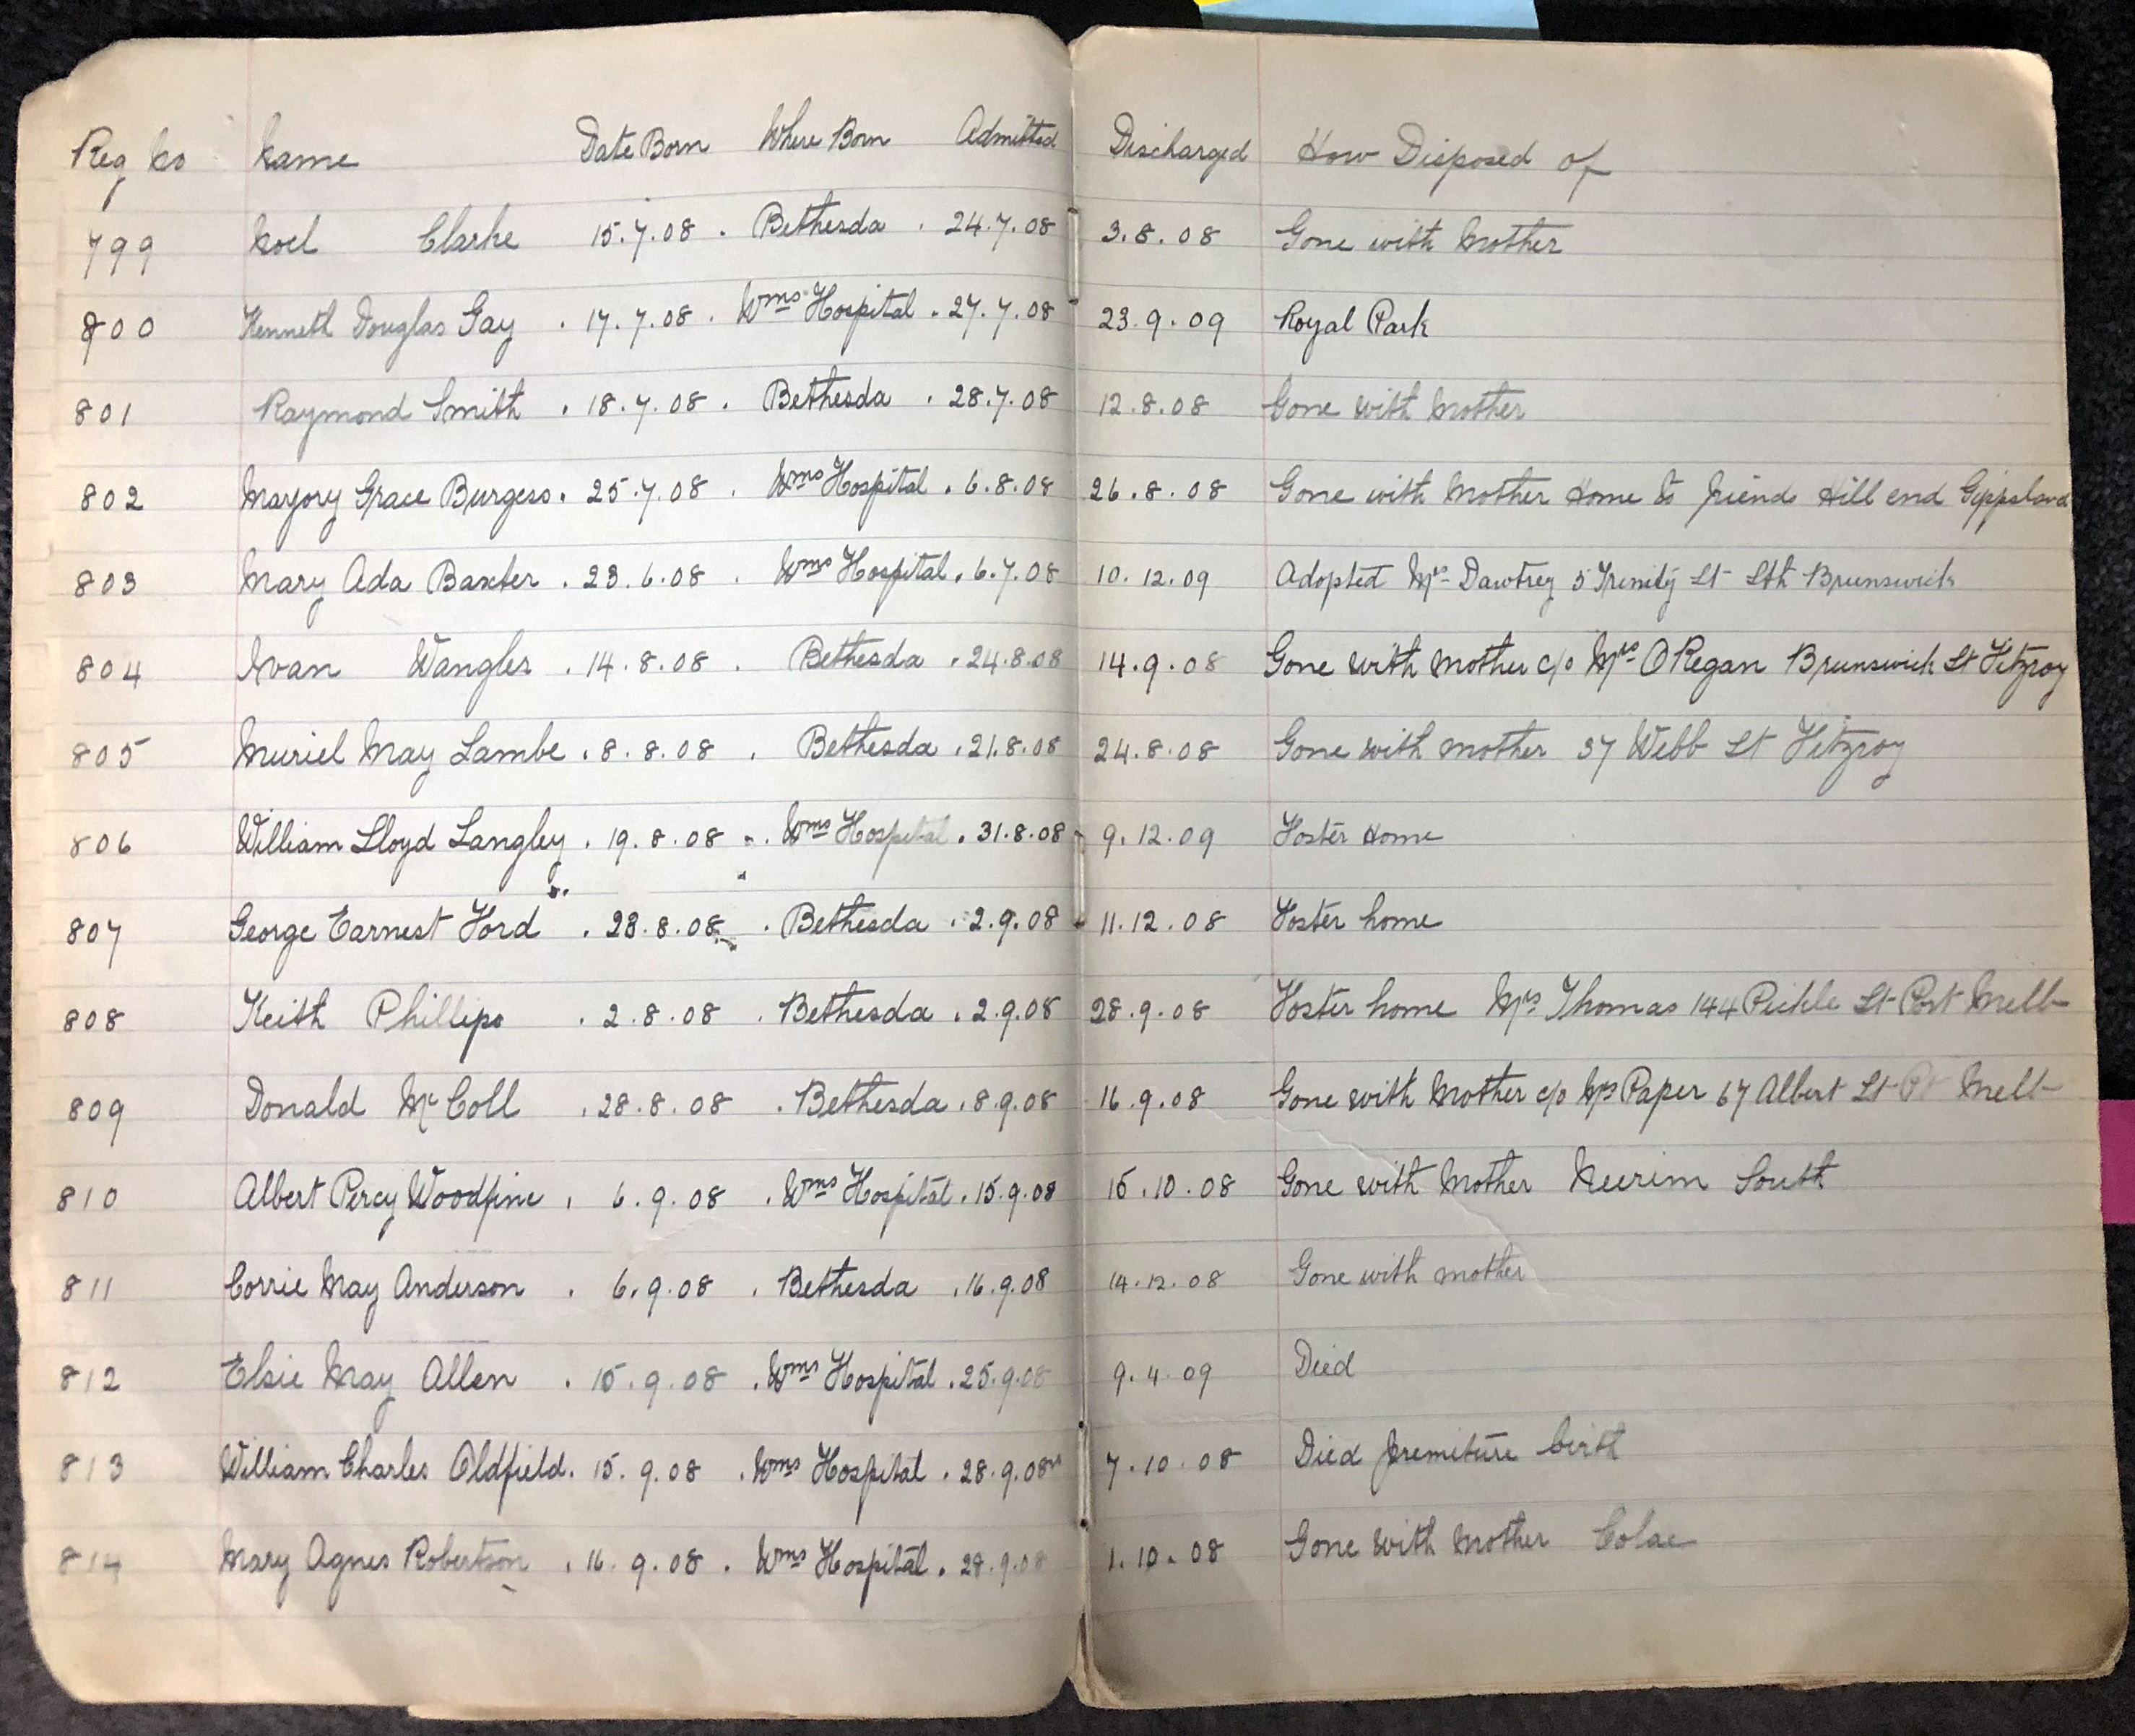 Reg No Name Date Born Where Born Admitted Discharged How Disposed of
799 Noel Clarke 15.7.08 . Bethesda . 24.7.08 3.8.08 Gone with Mother
800 Kenneth Douglas Gay . 17.7.08 . Wms Hospital . 27.7.08 23.9.09 Royal Park
801 Raymond Smith . 18.7.08 . Bethesda . 28.7.08 12.8.08 Gone with Mother
802 Marjory Grace Burgess . 25.7.08 . Wms Hospital . 6.8.08 26.8.08 Gone with Mother Home to friends Hill end Gippsland
803 Mary Ada Baxter . 23.6.08 . Wms Hospital . 6.7.08 10.12.09 Adopted Mrs Dawtrey 5 Trinity St Sth Brunswick
804 Ivan Wangler . 14.8.08 . Bethesda . 24.8.08 14.9.08 Gone with Mother c/o Mrs O Regan Brunswick St Fitzroy
805 Muriel May Lambe . 8.8.08 . Bethesda . 21.8.08 24.8.08 Gone with Mother 57 Webb St Fitzroy
806 William Lloyd Langley . 19.8.08 . Wms Hospital . 31.8.08 9.12.09 Foster Home
807 George Earnest Ford . 23.8.08 . Bethesda . 2.9.08 11.12.08 Foster home
808 Keith Phillips . 2.8.08 . Bethesda . 2.9.08 28.9.08 Foster home Mrs Thomas 144 Pickle St Port Melb
809 Donald McColl . 28.8.08 . Bethesda . 8.9.08 16.9.08 Gone with Mother c/o Mrs Paper 67 Albert St Pt Melb
810 Albert Percy Woodfine . 6.9.08 . Wms Hospital . 15.9.08 15.10.08 Gone with Mother Neerim South
811 Corrie May Anderson . 6.9.08 . Bethesda . 16.9.08 14.12.08 Gone with mother
812 Elsie May Allen . 15.9.08 . Wms Hospital . 25.9.08 9.4.09 Died
813 William Charles Oldfield . 15.9.08 . Wms Hospital . 28.9.08 7.10.08 Died premiture birth
814 Mary Agnes Robertson . 16.9.08 . Wms Hospital . 28.9.08 1.10.08 Gone with Mother Colac